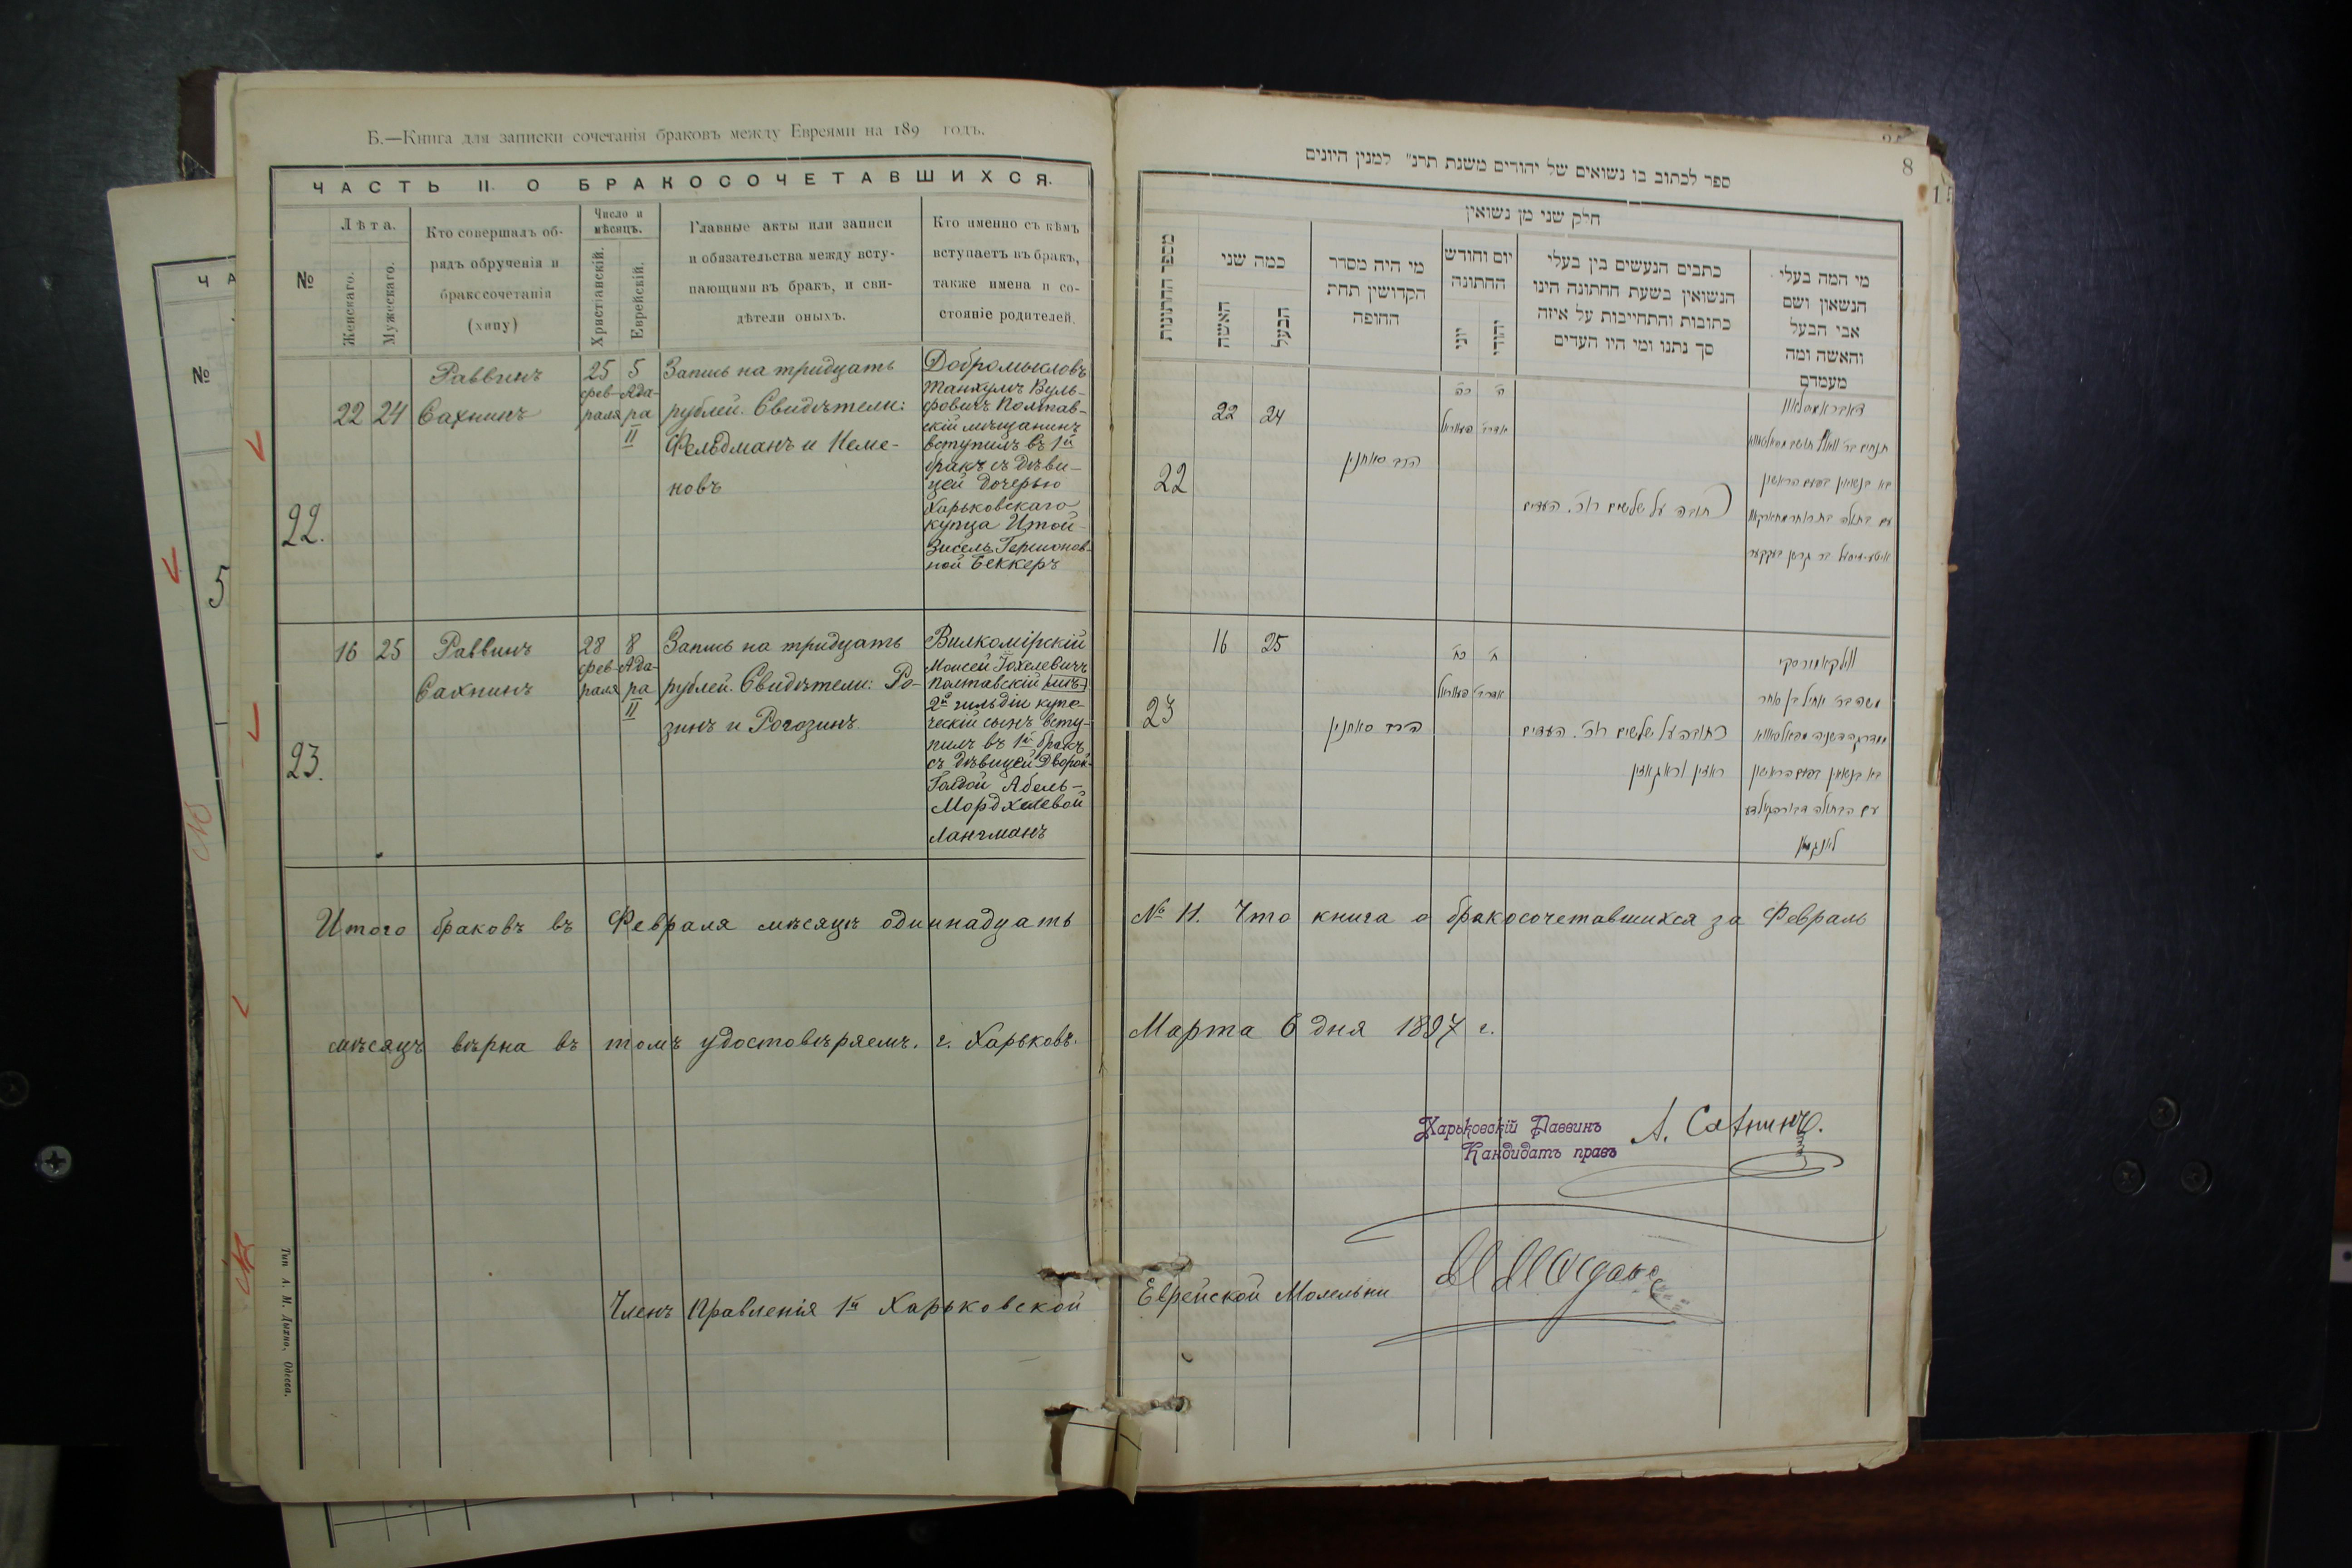 Б.—Книга для записки сочетанія браковъ между Евреями на 189 годъ.
ЧАСТЬ II. О БРАКОСОЧЕТАВШИХСЯ.
№
Лѣта.
Женскаго.
Мужескаго.
Кто совершалъ об-
рядъ обрученія и
бракосочетанія
(хипу)
Число и
мѣсяцъ.
Христіанскій.
Еврейскій.
Главные акты или записи
и обязательства между всту-
пающими въ бракъ, и сви-
дѣтели оныхъ.
Кто именно съ кѣмъ
вступаетъ въ бракъ,
также имена и со-
стояніе родителей.
22.
22 24
Раввинъ
Сахнинъ
25
фев-
раля
5
Ада-
ра
II
Запись на тридцать
рублей. Свидѣтели:
Фельдманъ и Неме-
новъ
Добромысловъ
Танхумъ Вуль-
фовичъ Полтав-
скій мѣщанинъ
вступилъ въ 1й
бракъ съ дѣви-
цей дочерью
Харьковскаго
купца Итой-
Зисель Гершонов-
ной Беккеръ
23.
16 25
Раввинъ
Сахнинъ
28
фев-
раля
8
Ада-
ра
II
Запись на тридцать
рублей. Свидѣтели: Ро-
зинъ и Рогозинъ
Вилкомірскій
Моисей Іохелевичъ
Полтавскій
2й гильдіи купе-
ческій сынъ всту-
пилъ въ 1й бракъ
съ дѣвицей Дворой-
Голдой Абель-
Мордхелевой
Лангманъ
Итого браковъ въ Февраля мѣсяцѣ одиннадцать
мѣсяцъ вѣрна въ томъ удостовѣряемъ. г. Харьковъ.
Членъ Правленія 1й Харьковской
Тип. А. М. Дыхно, Одесса.
8
ספר לכתוב בו נשואים של יהודים משנת תרנ״ למנין היונים
חלק שני מן נשואין
מספר החתונות
כמה שני
האשה
הבעל
מי היה מסדר
הקדושין תחת
החופה
יום וחודש
החתונה
יוני
יהודי
כתבים הנעשים בין בעלי
הנשואין בשעת החתונה הינו
כתובות והתחייבות על איזה
סך נתנו ומי היו העדים
מי המה בעלי
הנשאון ושם
אבי הבעל
והאשה ומה
מעמדם
22
22 24
הרב סאחנין
כה
ה׳
אדר
כתובה על שלשים רוכ׳. העדים
בא בנשואין בפעם הראשון
23
16 25
הרב סאחנין
כח
ח׳
אדר
כתובה על שלשים רוכ׳. העדים
ראזין וראגאזין
ווילקאמירסקי
בא בנשואין בפעם הראשון
לאנגמאן
№ 11. Что книга о бракосочетавшихся за Февраль
Марта 6 дня 1897 г.
Харьковскій Раввинъ
Кандидатъ правъ
А. Сахнинъ.
Еврейской Молельни